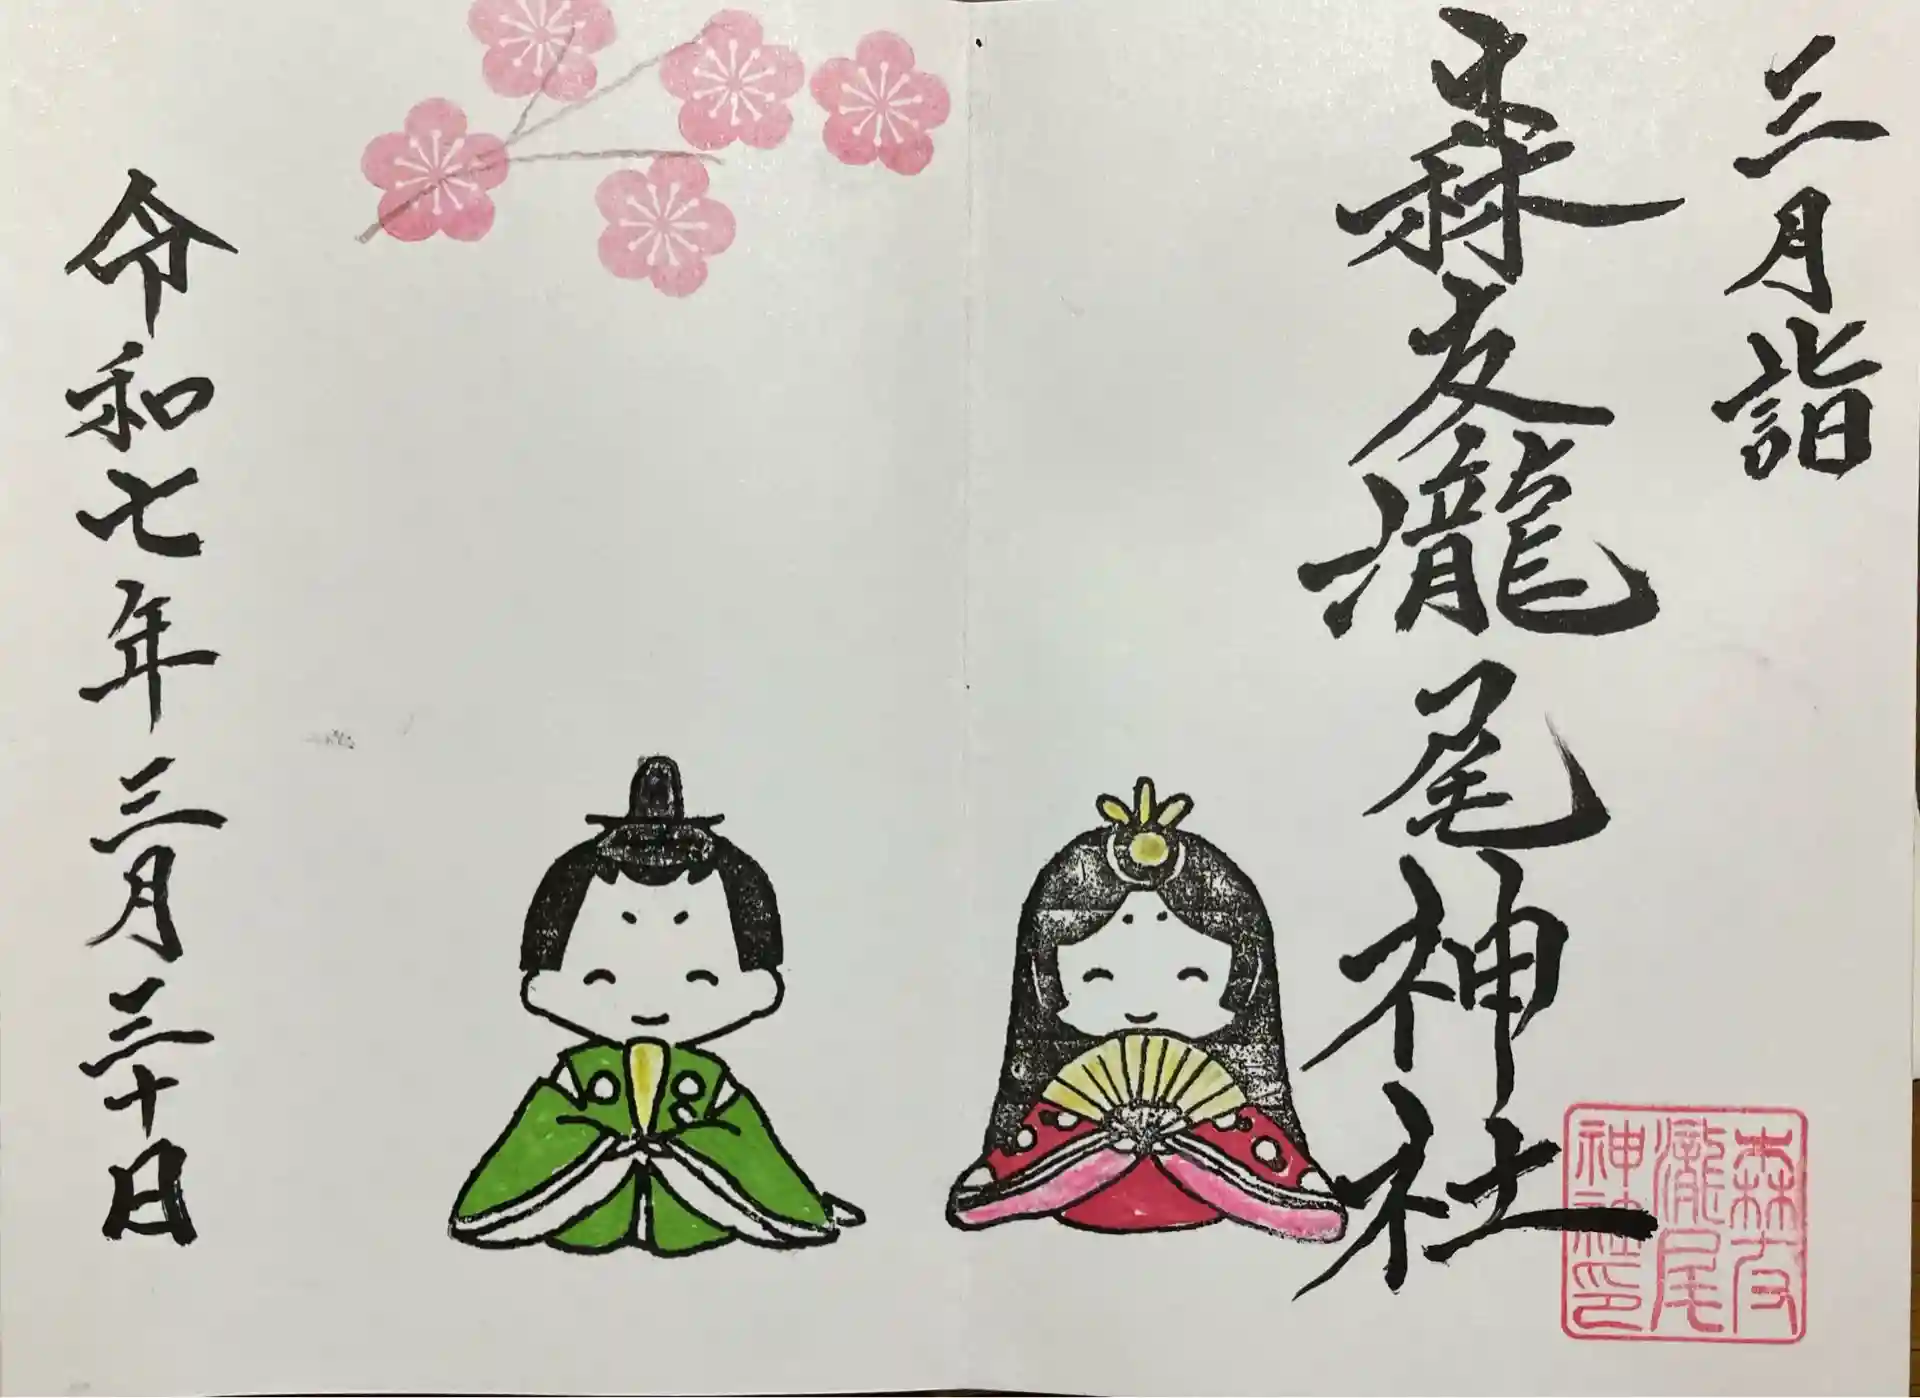 三月詣
森友瀧尾神社
森友
瀧尾
神社印
令和七年三月三十日